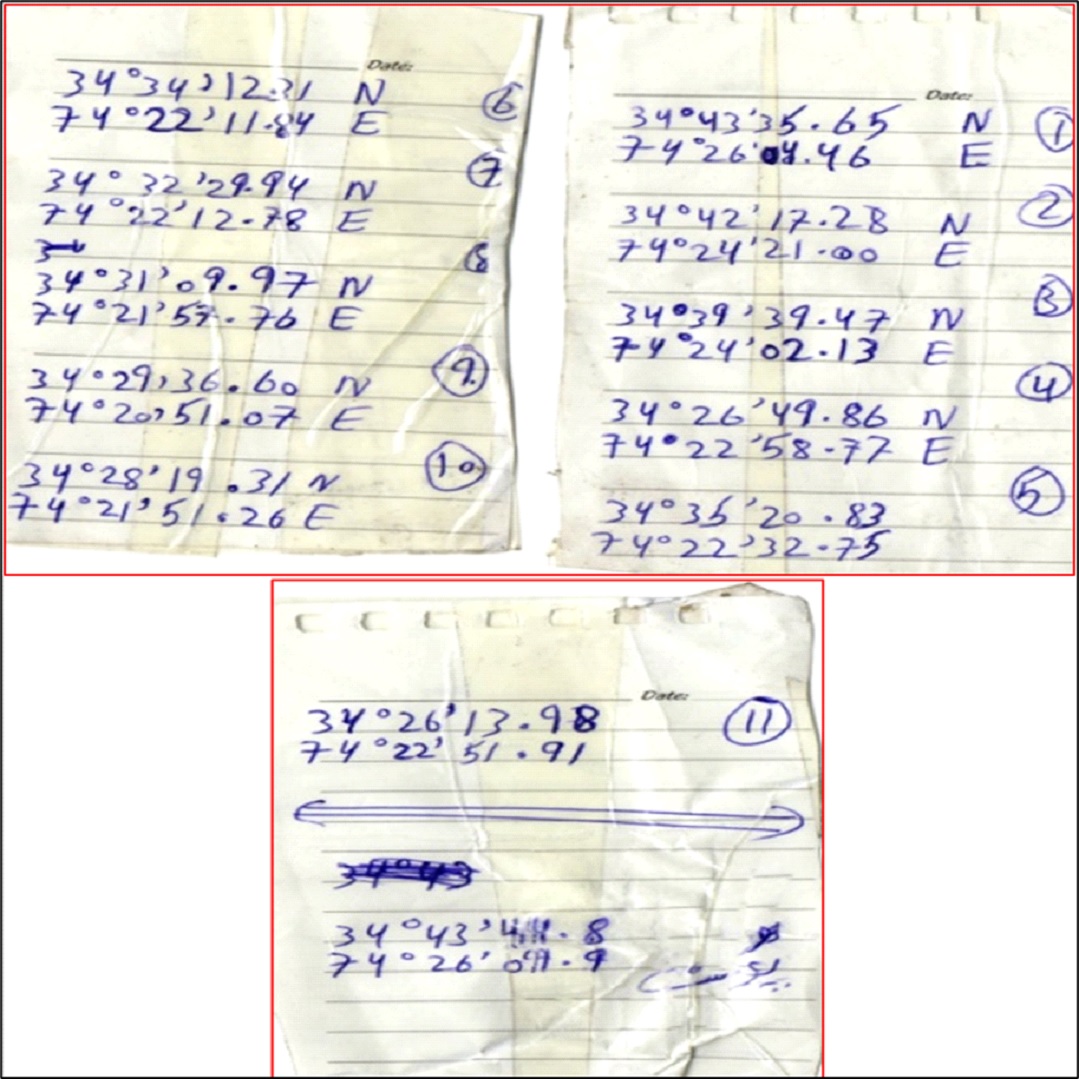 Date:
34°34'12.31 N
74°22'11.84 E
6
7
34°32'29.94 N
74°22'12.78 E
8
34°31'09.97 N
74°21'57.76 E
9
34°29'36.60 N
74°20'51.07 E
10
34°28'19.31 N
74°21'51.26 E
Date:
34°43'35.65 N
74°26'04.46 E
1
2
34°42'17.28 N
74°24'21.00 E
3
34°39'39.47 N
74°24'02.13 E
4
34°26'49.86 N
74°22'58.77 E
5
34°35'20.83
74°22'32.75
Date:
34°26'13.98
74°22'51.91
11
34°43
34°43'44.8
74°26'09.9